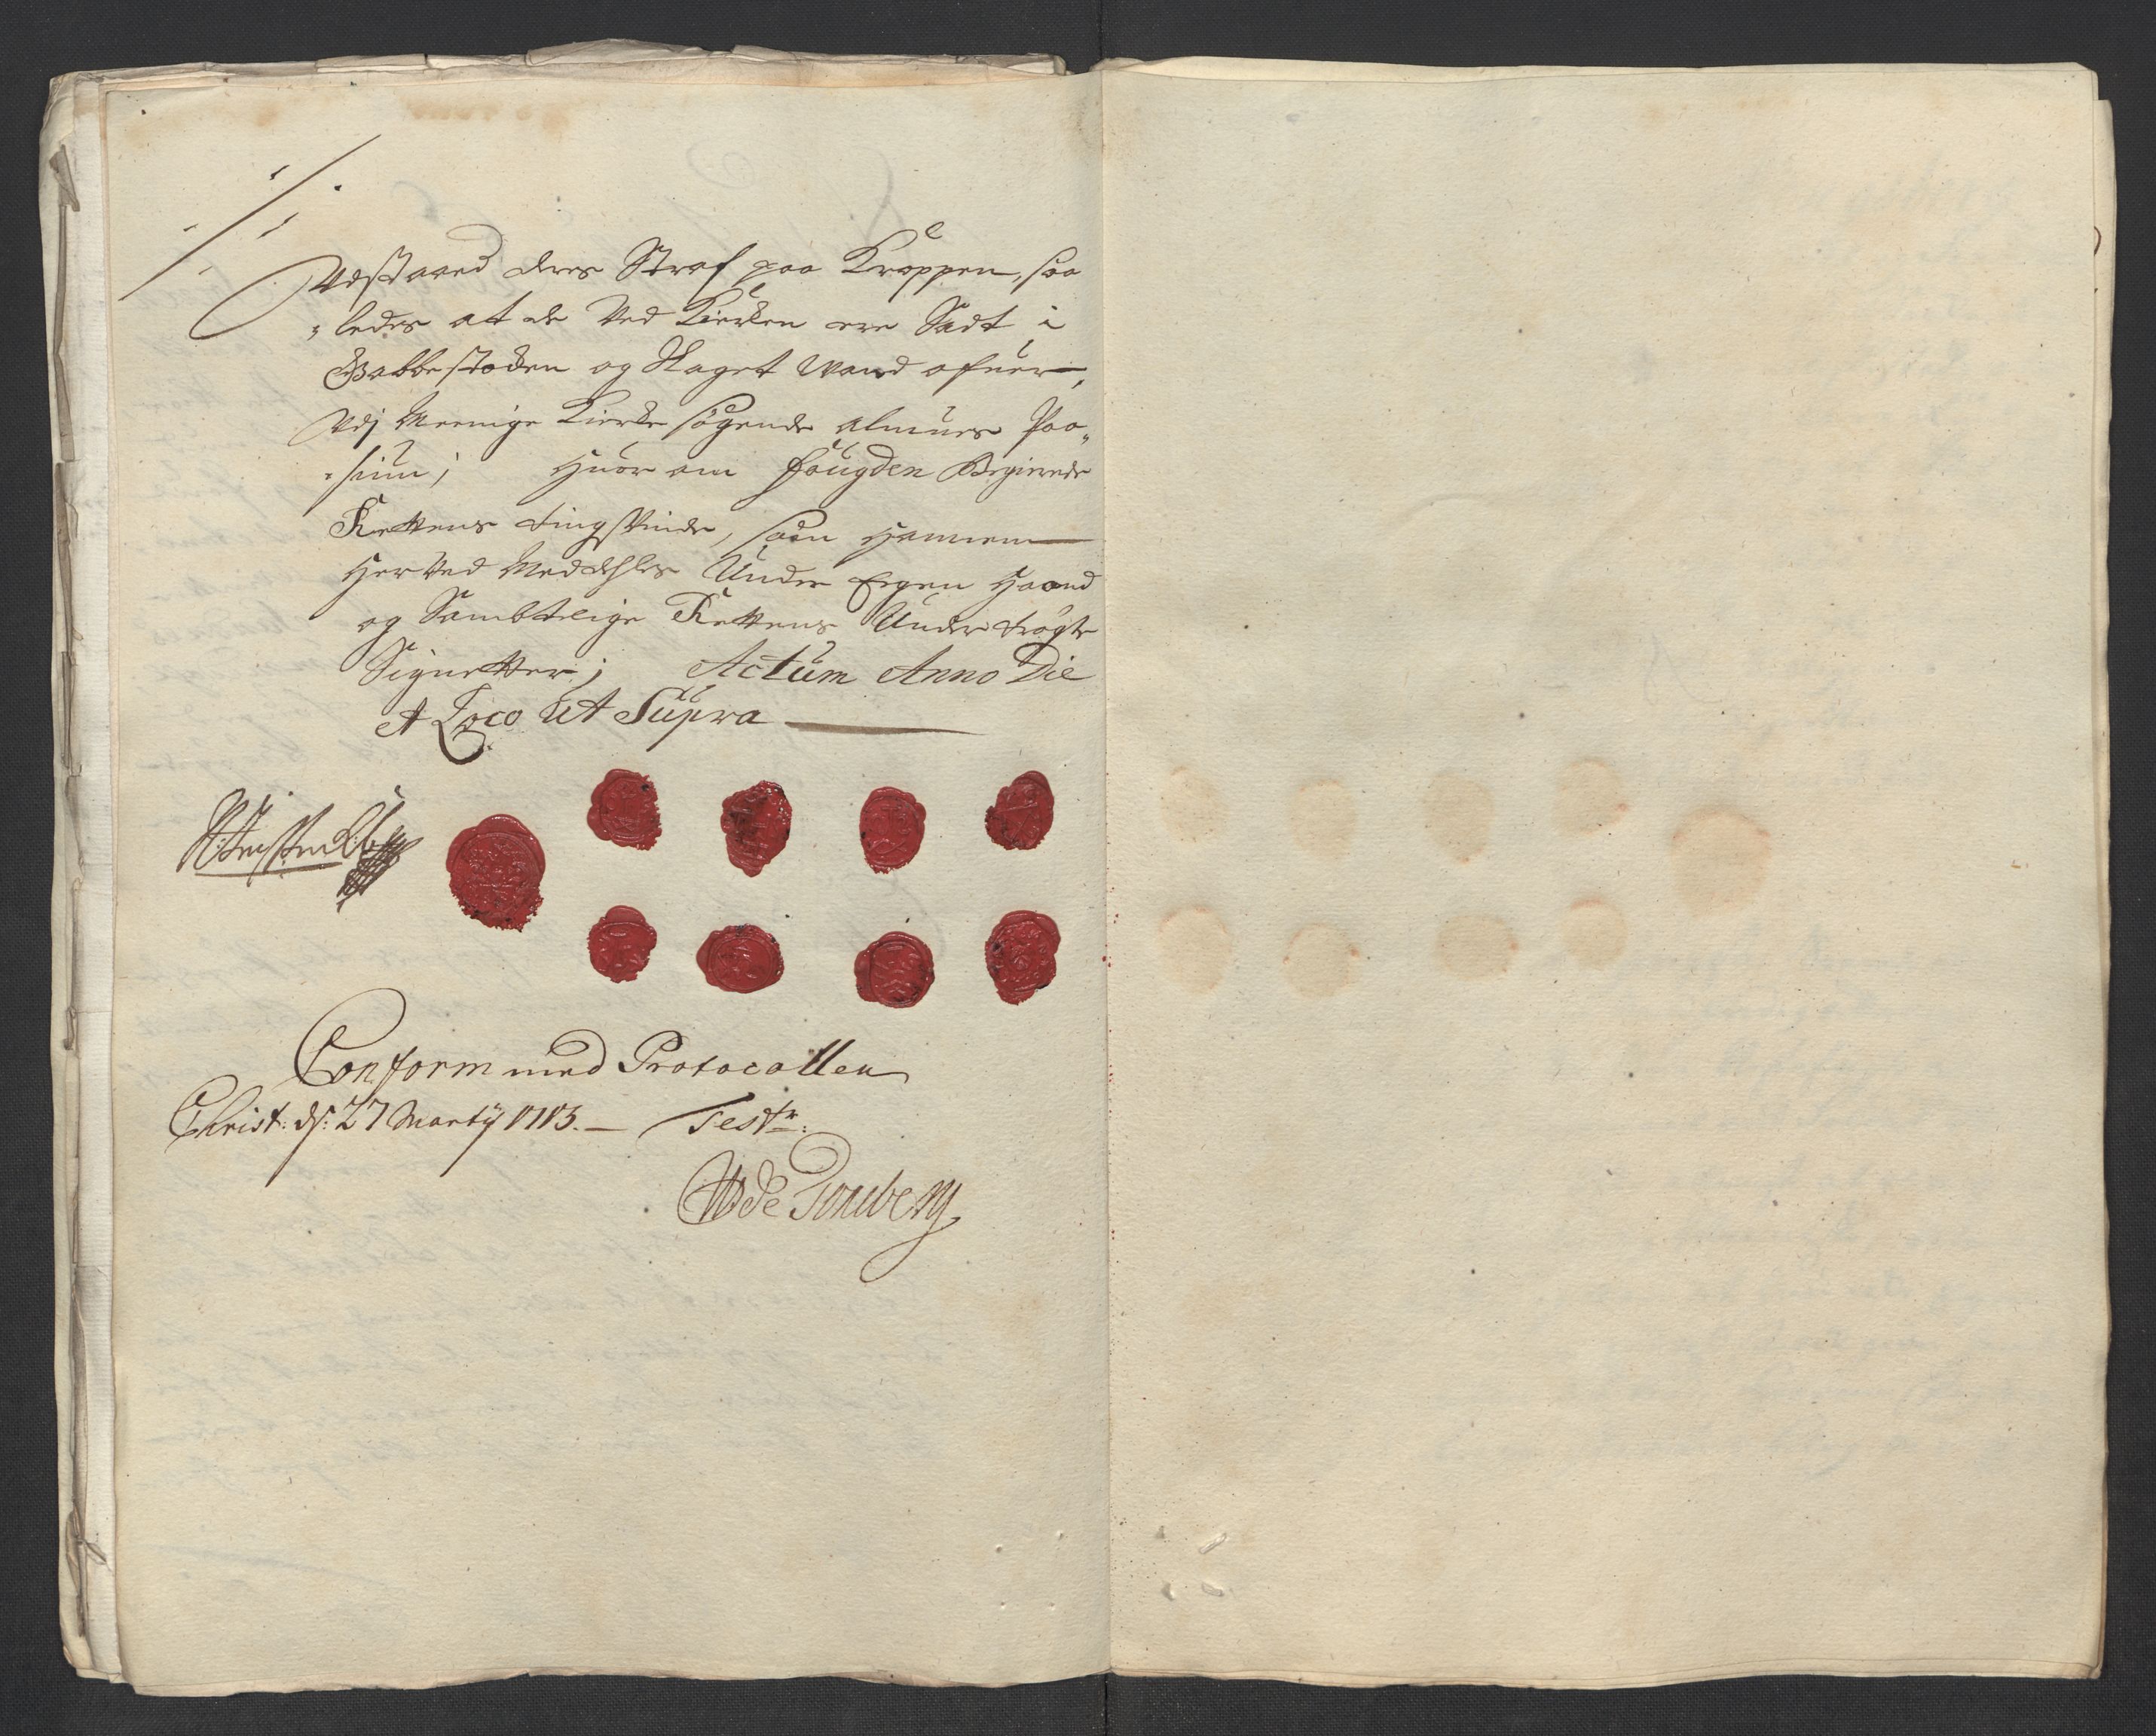 Udstaaed deres Straf paa Kroppen, saa
ledes at de Ved Kierken ere Sadt i
Gabbestocken og Slaget Wand ofuer,
Udj Meenige Kierke søgende Almues Paa
siun; Huor om fougden Begierede
Rettens tingsVinde, som Hannem
Her Ved Meddehles Under Egen Haand
og Sambtlige Rettens Under trøgte
Signetter; Actum Anno Die
et Loco Ut Supra
Conform med Protocollen
Christ: ds: 27 Martij 1713. Testr: